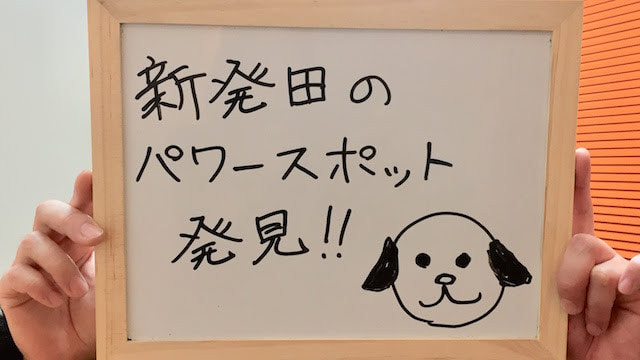 新発田の
パワースポット
発見!!